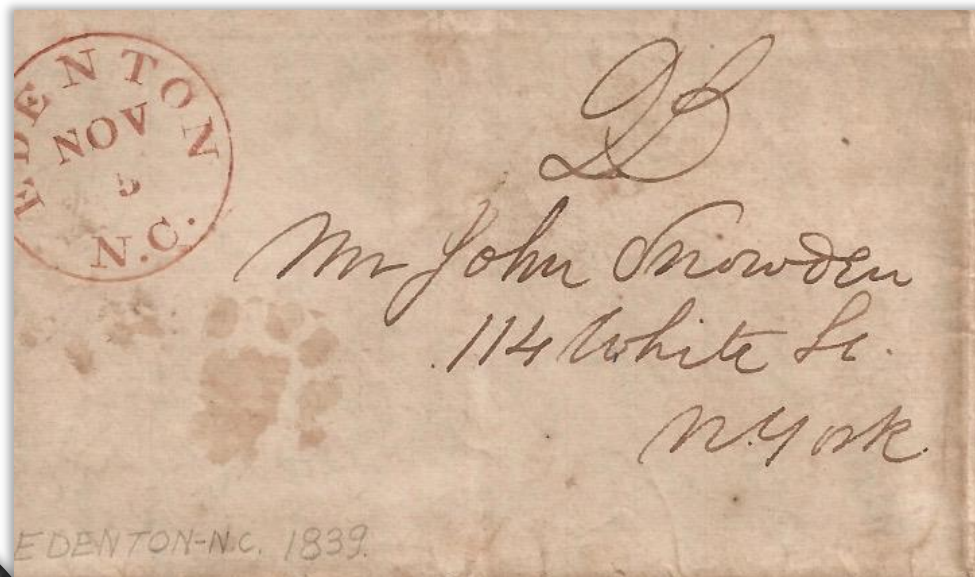 EDENTON
NOV
5
N.C.
Mr John Snowden
114 White St.
N.York.
EDENTON-N.C. 1839.